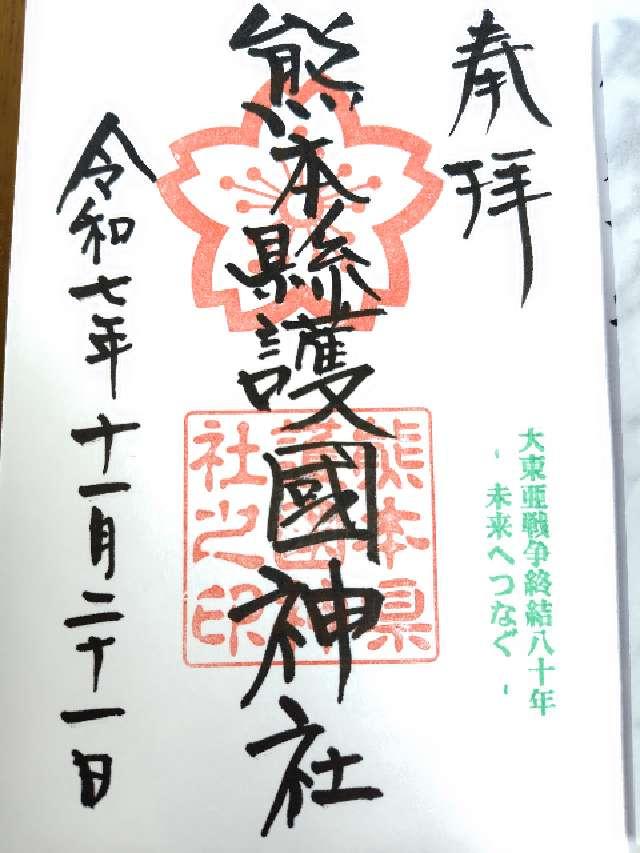 奉拝
大東亜戦争終結八十年
- 未来へつなぐ -
熊本縣護國神社
熊本県
護國神
社之印
令和七年十一月二十一日